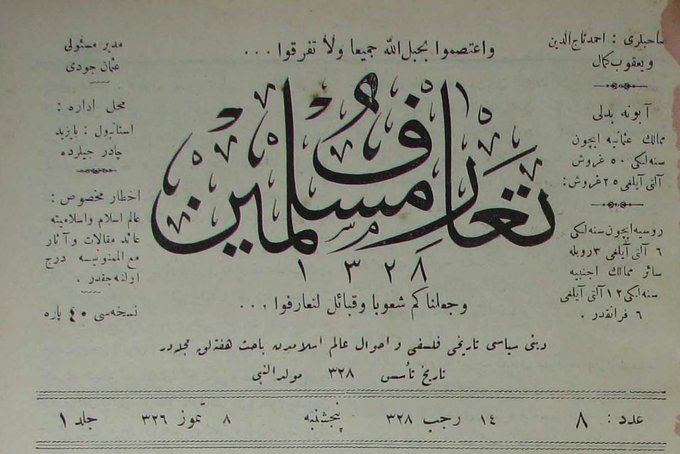 صاحبلری : احمد تاج الدین
و یعقوب کمال
آبونه بدلی
ممالك عثمانیه ایچون
سنه لکی ٥٠ غروش
آلتی آیلغی ٢٥ غروش :
روسیه ایچون سنه لکی
٦ آلتی آیلغی ٣ روبله
سائر ممالك اجنبیه
سنه لکی ١٢ آلتی آیلغی
٦ فرانقدر .
واعتصموا بحبل الله جمیعا ولا تفرقوا ...
تعارف مسلمین
١٣٢٨
وجعلناکم شعوبا وقبائل لتعارفوا ...
دینی سیاسی تاریخی فلسفی و احوال عالم اسلامدن باحث هفته لق مجله در
تاریخ تأسیس ٣٢٨ مولد النبی
مدیر مسئولی
عثمان جودی
محل اداره :
استانبول : بایزید
چادر جیلرده
اخطار مخصوص :
عالم اسلام واسلامیته
عائد مقالات و آثار
مع الممنونیه درج
اولنه جقدر .
نسخه سی ٤٠ پاره
عدد : ٨ ١٤ رجب ٣٢٨ پنجشنبه ٨ تموز ٣٢٦ جلد ١